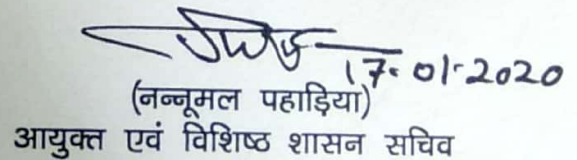 17.01.2020
(नन्नूमल पहाड़िया)
आयुक्त एवं विशिष्ठ शासन सचिव